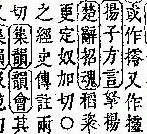 或作又作
揚子方言揚
楚辭招魂稻粢
更定奴加切〇
之經史傳註兩
切集韻韻會其